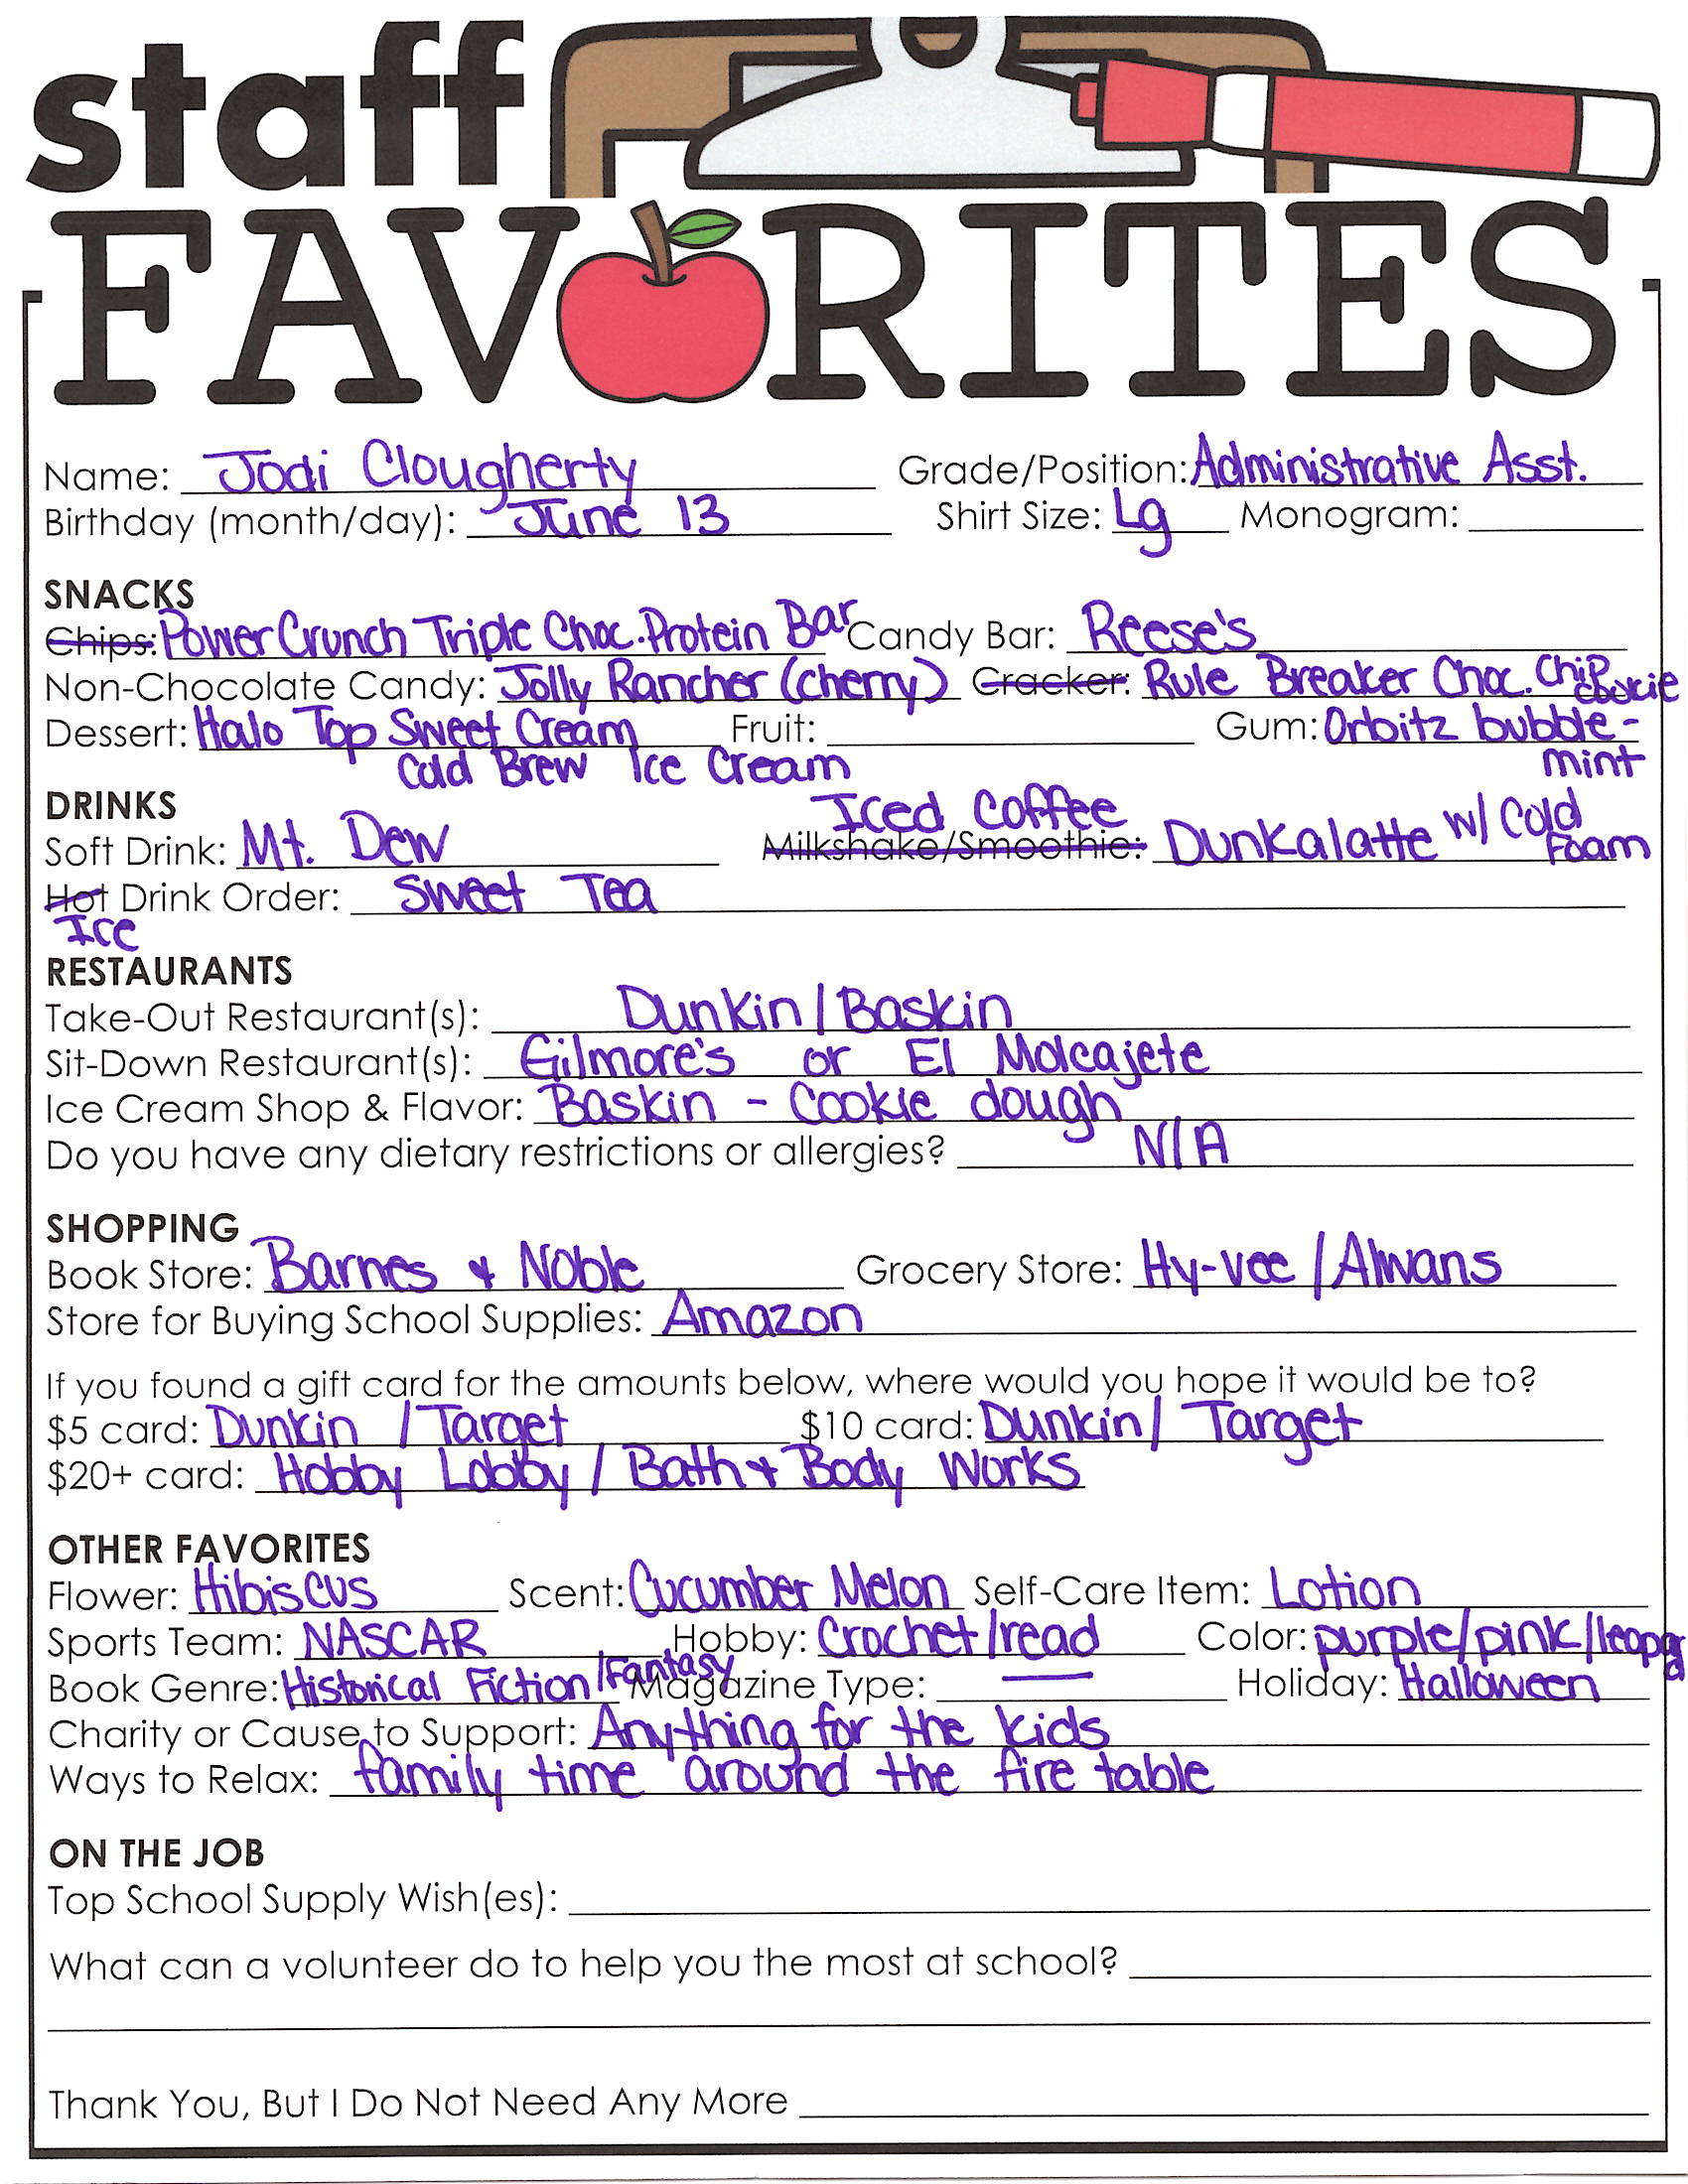 staff
FAVORITES
Name: Jodi Clougherty Grade/Position: Administrative Asst.
Birthday (month/day): June 13 Shirt Size: Lg Monogram:
SNACKS
Chips: Power Crunch Triple Choc. Protein Bar Candy Bar: Reese's
Non-Chocolate Candy: Jolly Rancher (cherry) Cracker: Rule Breaker Choc. Chip Cookie
Dessert: Halo Top Sweet Cream Fruit: Gum: Orbitz bubble-
Cold Brew Ice Cream mint
DRINKS Iced Coffee
Soft Drink: Mt. Dew Milkshake/Smoothie: Dunkalatte w/ Cold Foam
Hot Drink Order: Sweet Tea
Ice
RESTAURANTS
Take-Out Restaurant(s): Dunkin / Baskin
Sit-Down Restaurant(s): Gilmore's or El Molcajete
Ice Cream Shop & Flavor: Baskin - Cookie dough
Do you have any dietary restrictions or allergies? N/A
SHOPPING
Book Store: Barnes & Noble Grocery Store: Hy-vee / Alwans
Store for Buying School Supplies: Amazon
If you found a gift card for the amounts below, where would you hope it would be to?
$5 card: Dunkin / Target $10 card: Dunkin / Target
$20+ card: Hobby Lobby / Bath & Body Works
OTHER FAVORITES
Flower: Hibiscus Scent: Cucumber Melon Self-Care Item: Lotion
Sports Team: NASCAR Hobby: Crochet/read Color: purple/pink/leopard
Book Genre: Historical Fiction/Fantasy Magazine Type: — Holiday: Halloween
Charity or Cause to Support: Anything for the kids
Ways to Relax: family time around the fire table
ON THE JOB
Top School Supply Wish(es):
What can a volunteer do to help you the most at school?
Thank You, But I Do Not Need Any More